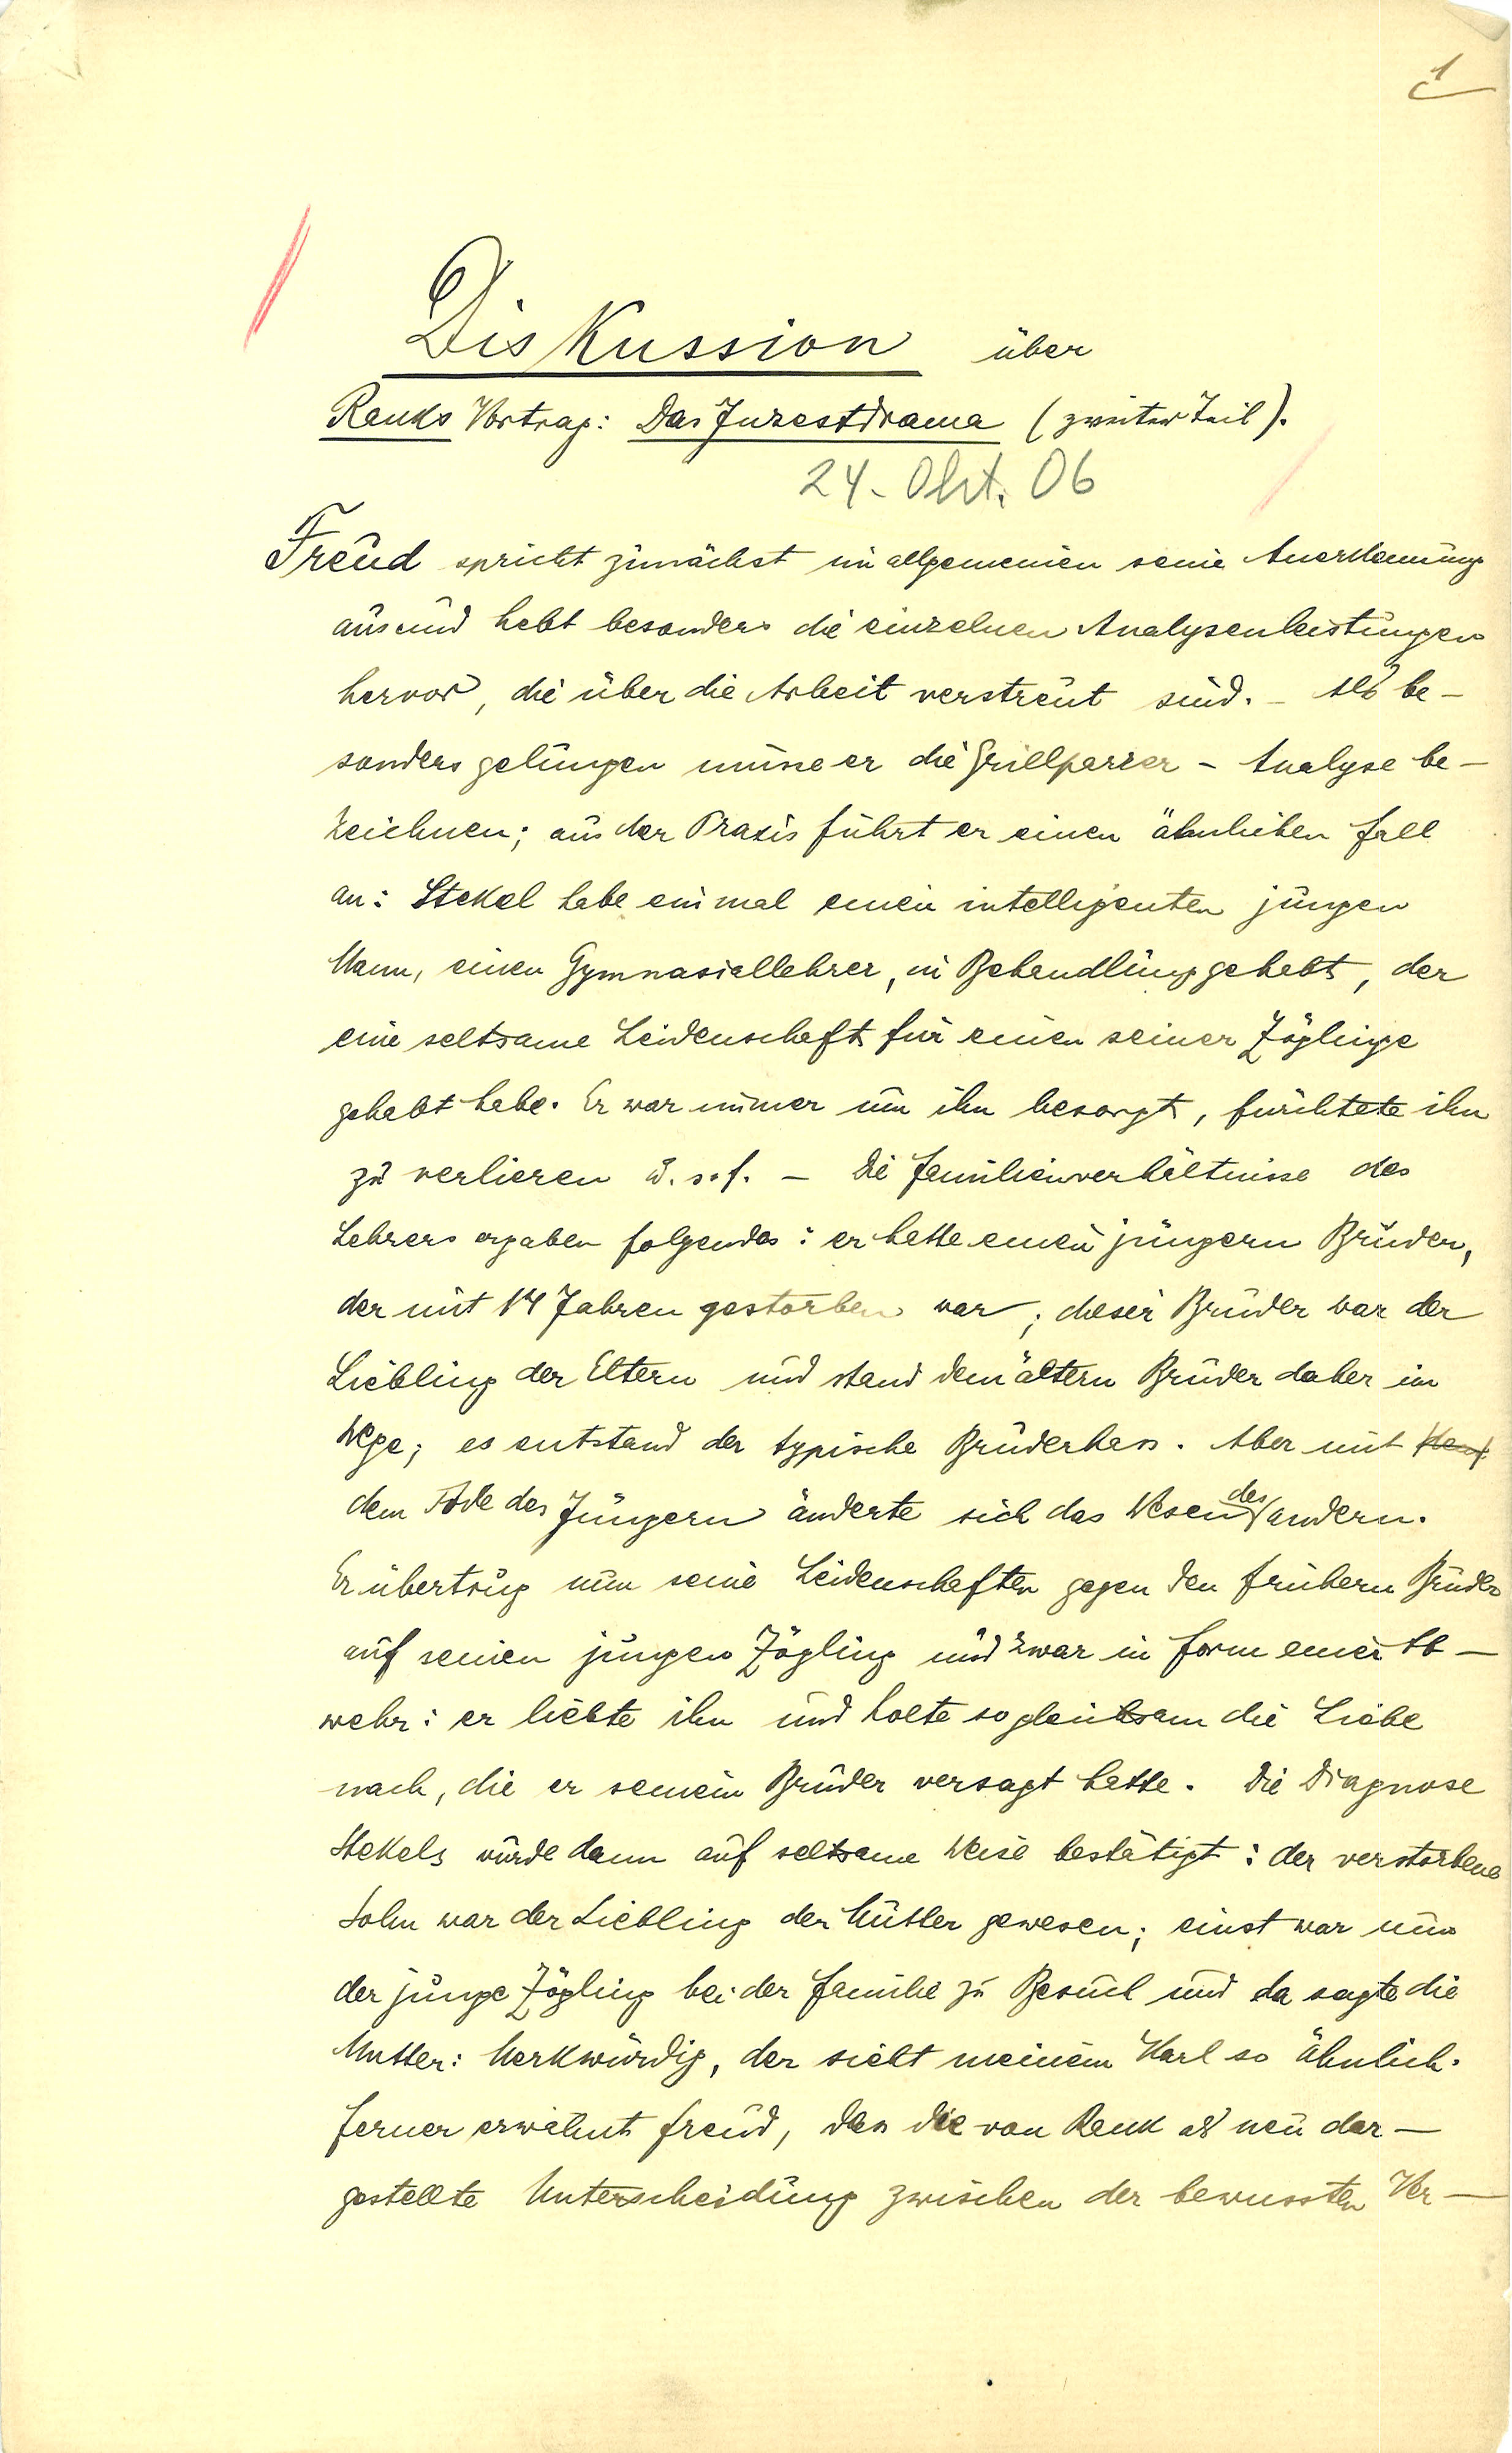 1
Diskussion über
Ranks Vortrag: Das Inzestdrama (zweiter Teil).
24. Okt. 06
Freud spricht zunächst im allgemeinen seine Anerkennung
aus und hebt besonders die einzelnen Analysenleistungen
hervor, die über die Arbeit verstreut sind. – Als be-
sonders gelungen müsse er die Grillparzer-Analyse be-
zeichnen; aus der Praxis führt er einen ähnlichen Fall
an: Stekel habe einmal einen intelligenten jungen
Mann, einen Gymnasiallehrer, in Behandlung gehabt, der
eine seltsame Leidenschaft für einen seiner Zöglinge
gehabt habe. Er war immer um ihn besorgt, fürchtete ihn
zu verlieren u. s. f. – Die Familienverhältnisse des
Lehrers ergaben folgendes: er hatte einen jüngern Bruder,
der mit 14 Jahren gestorben war; dieser Bruder war der
Liebling der Eltern und stand dem ältern Bruder daher im
Wege; es entstand der typische Bruderhass. Aber mit
dem Tode des Jüngern änderte sich das Wesen des andern.
Er übertrug nun seine Leidenschaften gegen den frühern Bruder
auf seinen jungen Zögling und zwar in Form einer Ab-
wehr: er liebte ihn und holte so gleichsam die Liebe
nach, die er seinem Bruder versagt hatte. Die Diagnose
Stekels wurde dann auf seltsame Weise bestätigt: der verstorbene
Sohn war der Liebling der Mutter gewesen; einst war nun
der junge Zögling bei der Familie zu Besuch und da sagte die
Mutter: Merkwürdig, der sieht meinem Karl so ähnlich.
Ferner erwähnt Freud, dass die von Rank als neu dar-
gestellte Unterscheidung zwischen der bewussten Ver-